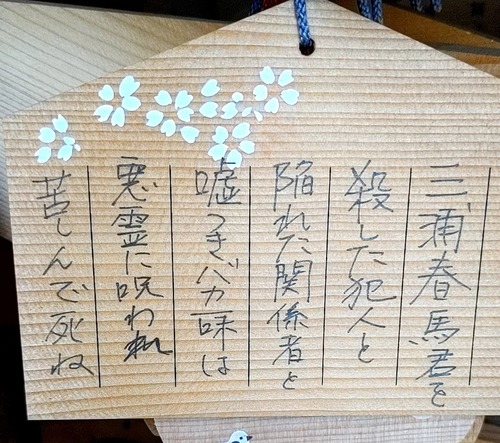 三浦春馬君を
殺した犯人と
陥れた関係者と
嘘つきバカ味は
悪霊に呪われ
苦しんで死ね